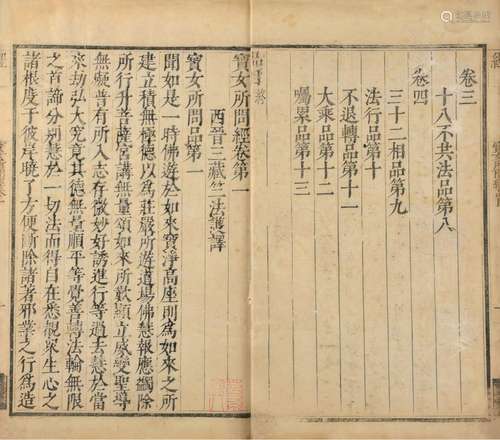 卷三
十八不共法品第八
卷四
三十二相品第九
法行品第十
不退轉品第十一
大乘品第十二
囑累品第十三
寶女所問經卷第一
西晉三藏竺法護譯
寶女所問品第一
聞如是一時佛遊於如來寶淨高座前爲如來之所
建立積無極德以爲莊嚴所遊道場佛慧報應蠲除
所行升菩薩宮講無量頌如來所歎顯立感變聖導
無礙普入志存微妙好誘進行等過去慧於當
來劫弘大究竟其德無量順平等覺善轉法輪無限
之首諦分別慧於一切法而得自在悉觀衆生心之
諸根度于彼岸曉了方便斷除諸著邪業之行爲造